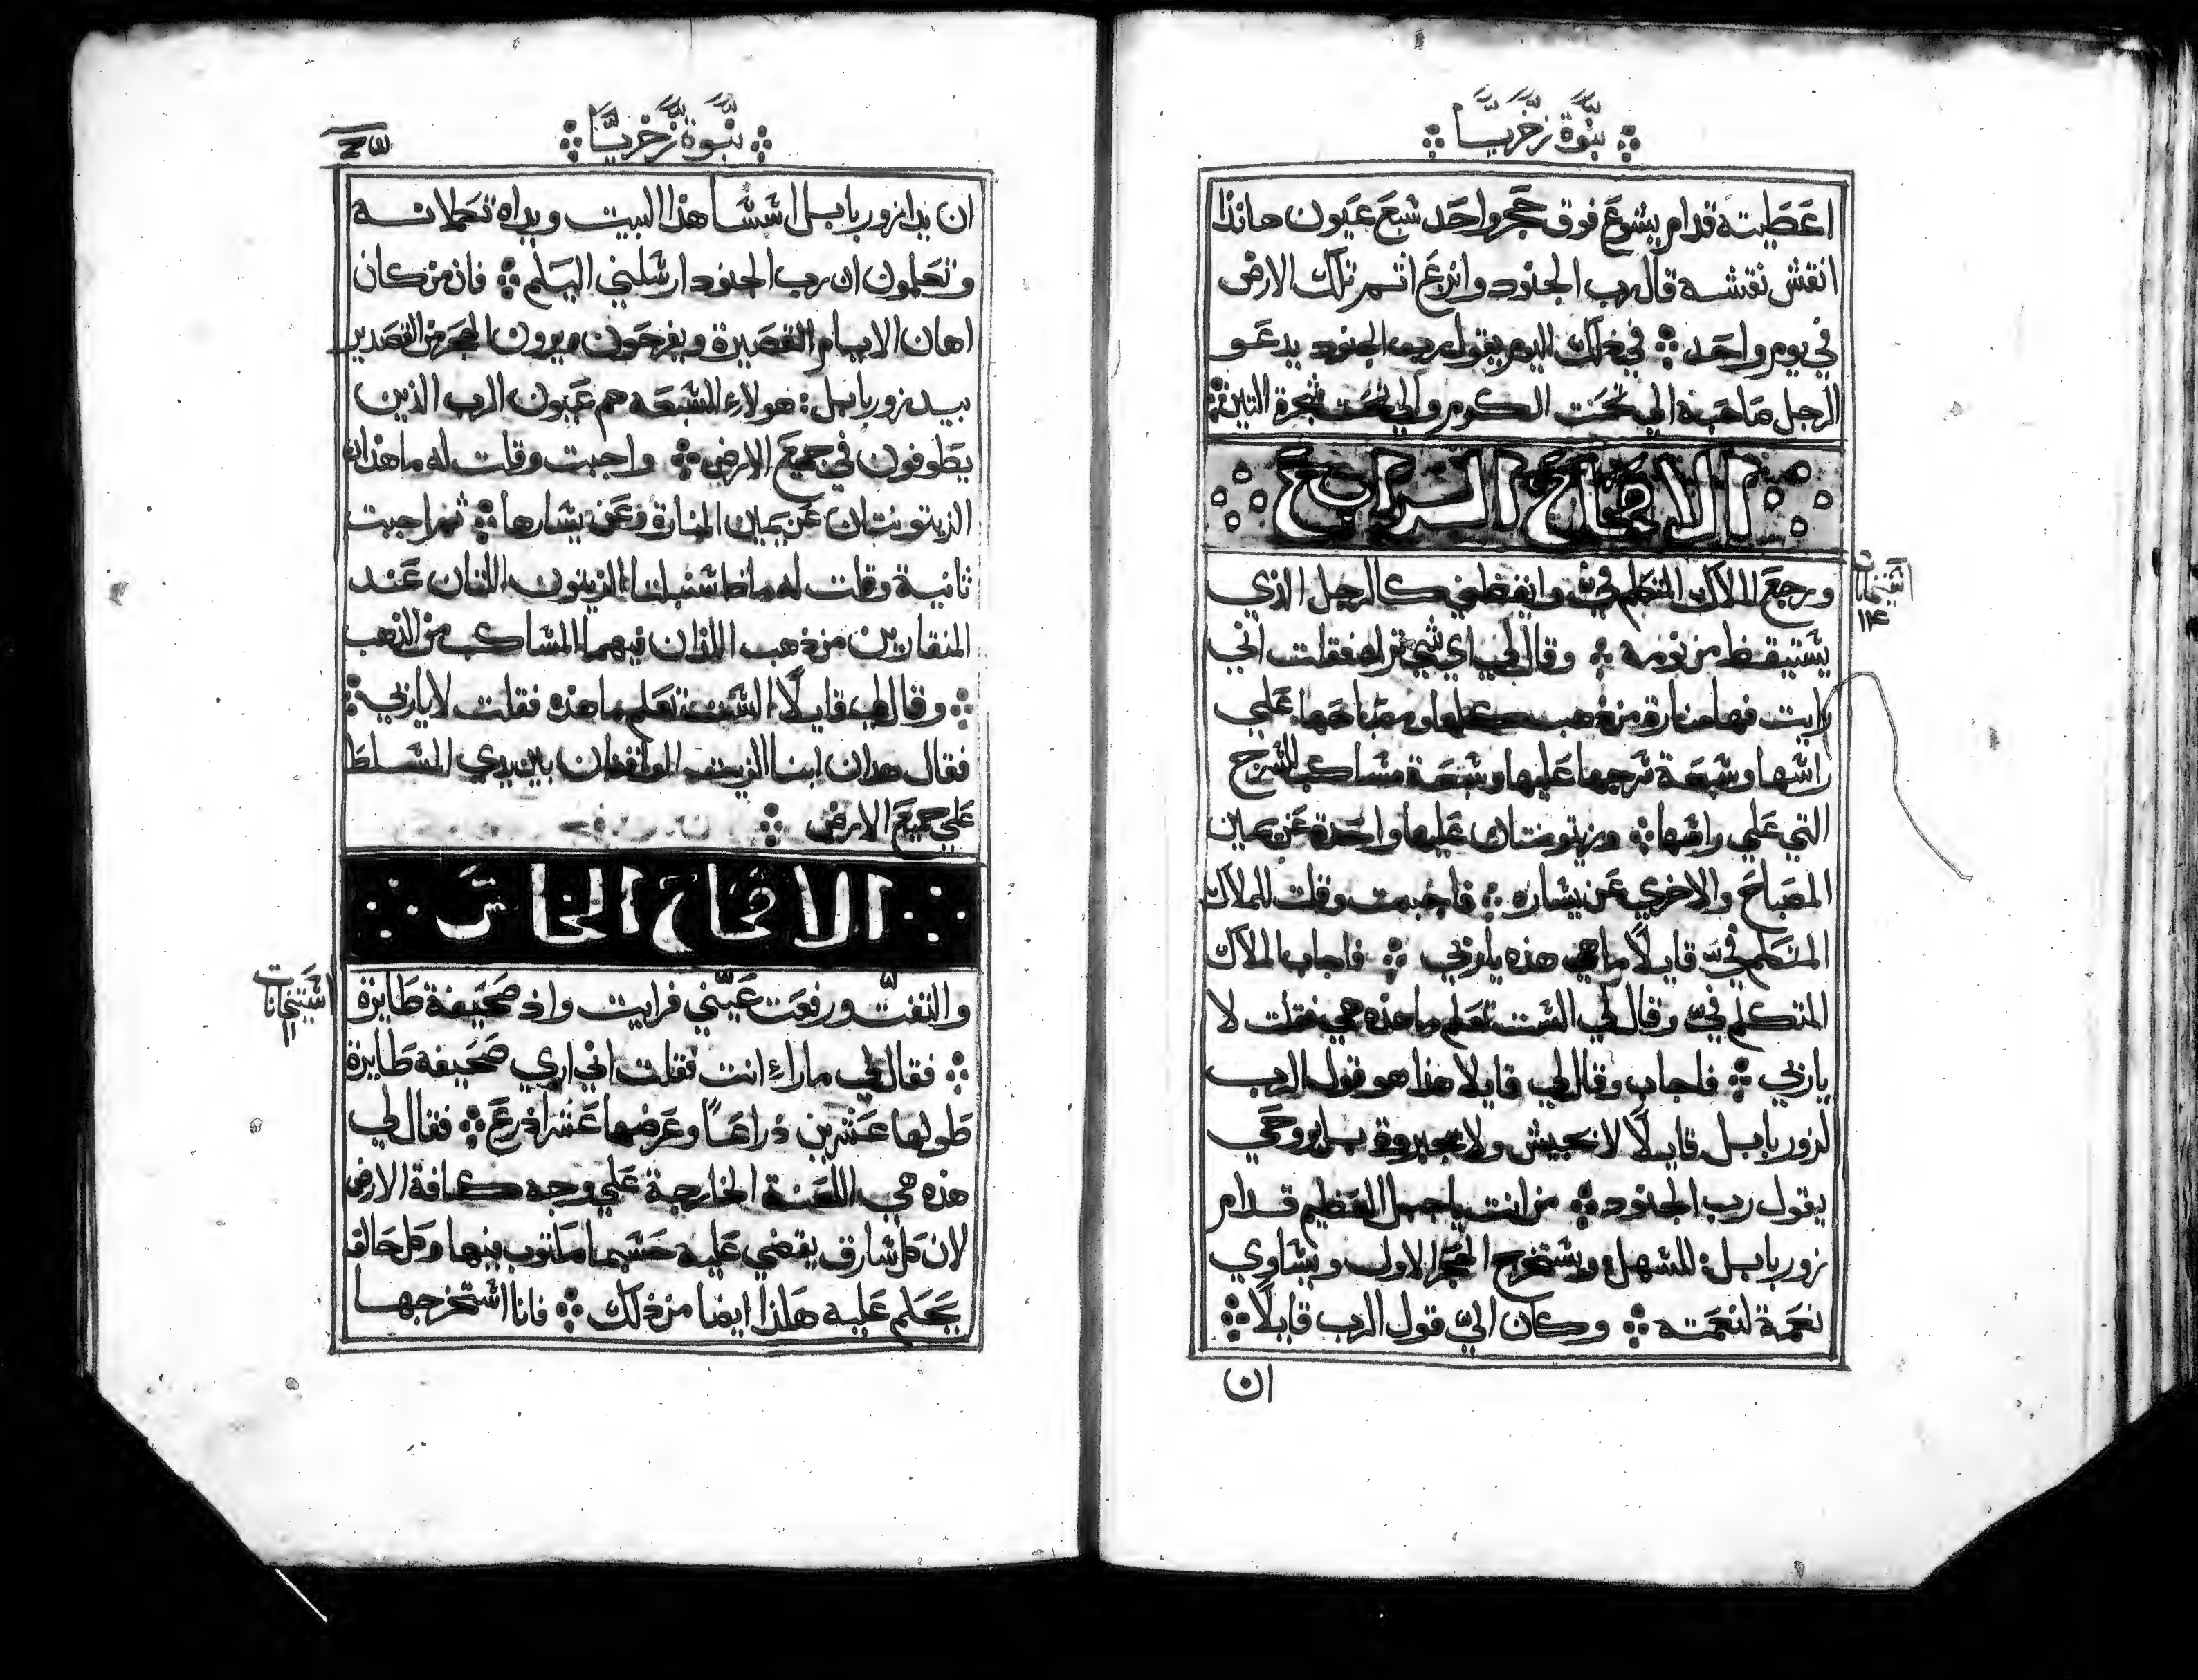 نبوة زخريا
اعطيته قدام يشوع فوق حجر واحد شبع عيون هانذا
انقش نقشه قال رب الجنود وانزع اثم تلك الارض
في يوم واحد في ذلك اليوم يقول رب الجنود يدعو
الرجل صاحبه الي تحت الكرم والي تحت شجرة التين
الاصحاح الرابع
ورجع الملاك المتكلم فيّ وايقظني كالرجل الذي
يشتيقظ من نومه وقال لي اي شي تراه فقلت اني
رايت فها منارة من ذهب كلها ومصباحها علي
راشها وشبعة شرجها عليها وشبعة مشاكب للشرج
التي علي راشها وزيتونتان عليها واحدة عن يمين
المصباح والاخري عن يشاره فاجبت وقلت للملاك
المتكلم فيّ قايلًا ما هي هذه يا ربي فاجاب الملاك
المتكلم فيّ وقال لي الشت تعلم ما هذه هي فقلت لا
يا ربي فاجاب وقال لي قايلا هذا هو قول الرب
لزوربابل قايلًا لا بجيش ولا بجبروة بل بروحي
يقول رب الجنود من انت يا جبل العظيم قدام
زوربابل للشهل ويشتخرج الحجر الاول ويشاوي
نعمة لنعمته وكان اليّ قول الرب قايلًا
ان
اشتيخانات
١١٤
نبوة زخريا
ان يدا زوربابل اششا هذا البيت ويداه تكملانه
وتعلمون ان رب الجنود ارشلني اليكم فان من كان
اهان الايام القصيرة ويفرحون ويرون الحجر من القصدير
بيد زوربابل هولاء الشبعه هم عيون الرب الذين
يطوفون في جميع الارض واجبت وقلت له ما هذان
الزيتونتان عن يمين المنارة وعن يشارها ثم اجبت
ثانية وقلت له ماذا شنبلتا الزيتون اللتان عند
المنقارين من ذهب اللذان فيهما المشاكب من الذهب
وقال لي قايلًا الشت تعلم ما هذه فقلت لا يا ربي
فقال هذان ابنا الزيت الواقفان بين يدي المشلط
علي جميع الارض
الاصحاح الخامس
والتفتّ ورفعت عينيّ فرايت واذ صحيفة طايرة
فقال لي ماراء انت فقلت اني اري صحيفه طايرة
طولها عشرين ذراعًا وعرضها عشر اذرع فقال لي
هذه هي اللعنة الخارجة علي وجه كافة الارض
لان كل شارق يقضي عليه حشبما مكتوب فيها وكل حالف
يحكم عليه هكذا ايضا من ذلك فانا اشتخرجها
اشتيخانات
١١